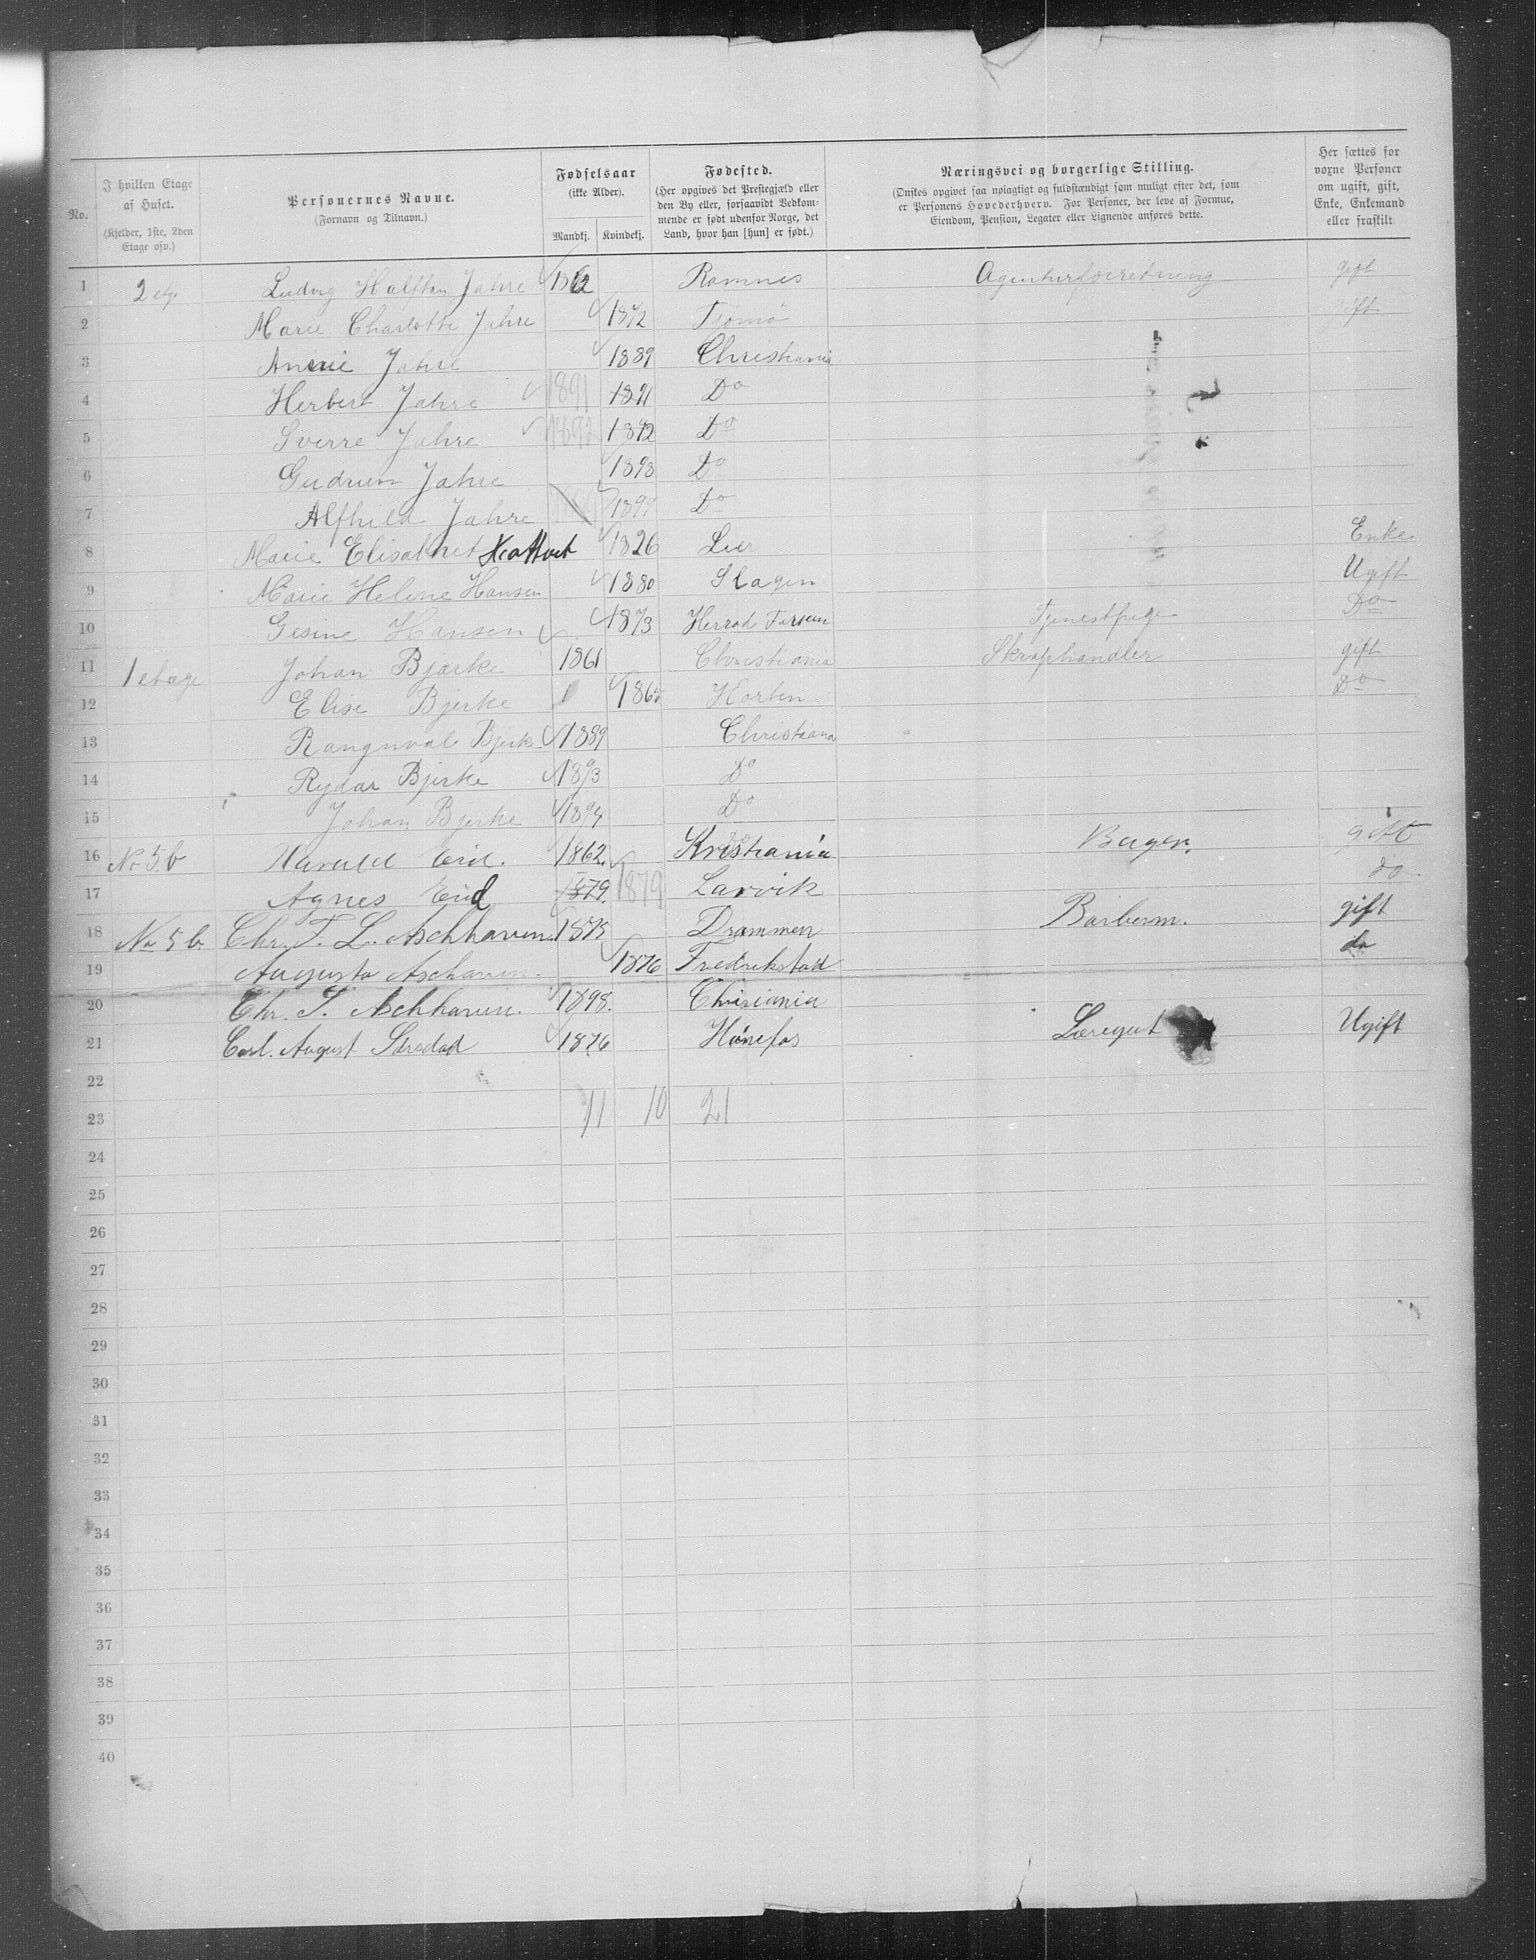 No. I hvilken Etage af Huset. (Kjelder, 1ste, 2den Etage osv.) Personernes Navne. (Fornavn og Tilnavn.) Fødselsaar (ikke Alder). Mandkj. Kvindekj. Fødested. (Her opgives det Prestegjæld eller den By eller, forsaavidt Vedkommende er født udenfor Norge, det Land, hvor han [hun] er født.) Næringsvei og borgerlige Stilling. (Ønskes opgivet saa nøiagtigt og fuldstændigt som muligt efter det, som er Personens Hovederhverv. For Personer, der leve af Formue, Eiendom, Pension, Legater eller Lignende anføres dette. Her sættes for voxne Personer om ugift, gift, Enke, Enkemand eller fraskilt
1 2 etg. Ludvig Halftan Jahre 1862 Ramnes Agenturforretning gift
2 Marie Charlotte Jahre 1872 Tjømø gift
3 Annie Jahre 1889 Christiania
4 Herbert Jahre 1891 1891 Do
5 Sverre Jahre 1892 1892 Do
6 Gudrun Jahre 1898 Do
7 Alfhild Jahre 1899 Do
8 Marie Elisabhet 1826 Lier Enke
9 Marie Helene Hansen 1880 Slagen Ugift
10 Gesine Hansen 1873 Tjenestpige Do
11 1 etage Johan Bjærke 1861 Christiania Skraphandler gift
12 Elise Bjerke 1865 Horten Do
13 Rangnval Bjerke 1889 Christiana
14 Rydar Bjerke 1893 Do
15 Johan Bjerke 1894 Do
16 No 5.b Harald Eid. 1862. Kristiania Bager. gift
17 Agnes Eid 1879. 1879 Larvik do.
18 No 5 b. Chr. F. L. Aschhaven. 1875 Drammen Barberm. gift
19 Augusta Aschaven. 1876 Fredrikstad do
20 Chr. F. Aschhaven. 1898. Chrisiania
21 Carl. August 1876 Hønefos Læregut Ugift
22
23 11 10 21
24
25
26
27
28
29
30
31
32
33
34
35
36
37
38
39
40